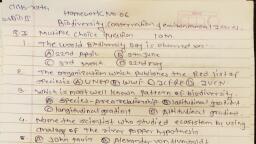 Class-XIIth Homework No 06
Biodiversity Conservation & Environmental Issues
Q.I Multiple Choice Question 10M
1. The World Biodiversity Day is observed on
A) 22nd April B) 5th June
C) 3rd March D) 22nd May
2. The organization which publishes the Red list of
species is A) UNEP B) WWF C) ICFRE D) IUCN
3. Which is most well known pattern of biodiversity
A) Species-area relationship B) latitudinal gradient
C) longitudinal gradient D) Altitudinal gradient
4. Name the scientist who studied ecosystem by using
analogy of the river popper hypothesis
A) John Tavis B) Alexander von Humboldt